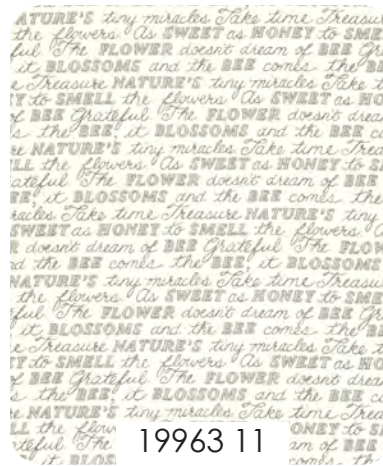 ATURE'S tiny miracles Take time Treasu
the flowers As SWEET as HONEY to SME
ful The FLOWER doesn't dream of BEE G
it BLOSSOMS and the BEE comes the BE
e Treasure NATURE'S tiny miracles Take t
Y to SMELL the flowers As SWEET as HO
of BEE Grateful The FLOWER doesn't drea
s the BEE, it BLOSSOMS and the BEE co
re NATURE'S tiny miracles Take time Trea
LL the flowers As SWEET as HONEY to S
ateful The FLOWER doesn't dream of BEE
EE, it BLOSSOMS and the BEE comes the
racles Take time Treasure NATURE'S tiny
SWEET as HONEY to SMELL the flowers
R doesn't dream of BEE Grateful The FLOW
d the BEE comes the BEE, it BLOSSOMS
NATURE'S tiny miracles Take time Treasu
the flowers As SWEET as HONEY to SME
ful The FLOWER doesn't dream of BEE Gr
it BLOSSOMS and the BEE comes the B
e Treasure NATURE'S tiny miracles Take t
Y to SMELL the flowers As SWEET as HO
f BEE Grateful The FLOWER doesn't drea
s the BEE, it BLOSSOMS and the BEE co
re NATURE'S tiny miracles Take time Trea
LL the flow ONEY to S
ateful The am of BEE
it BLOS comes the
19963 11